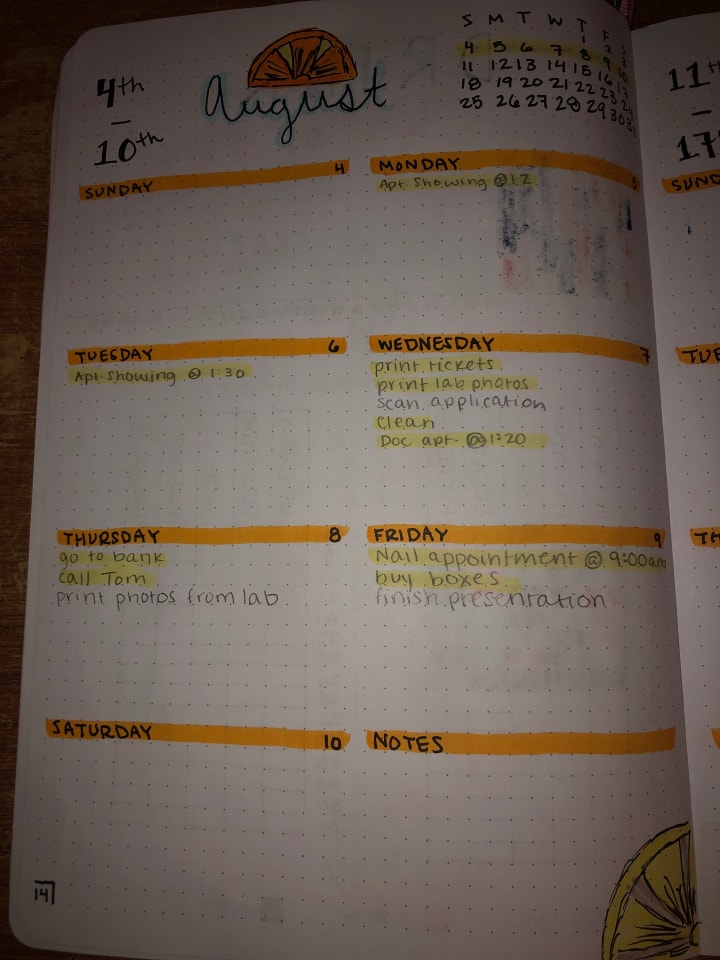 4th
–
10th
August
S M T W T F S
1 2 3
4 5 6 7 8 9 10
11 12 13 14 15 16 17
18 19 20 21 22 23 24
25 26 27 28 29 30 31
11th
–
17
SUNDAY 4
MONDAY 5
Apt Showing @ 12
SUND
TUESDAY 6
Apt Showing @ 1:30
WEDNESDAY 7
print tickets
print lab photos
scan application
clean
Doc apt. @ 1:20
TUE
THURSDAY 8
go to bank
call Tom
print photos from lab
FRIDAY 9
Nail appointment @ 9:00am
buy boxes
finish presentation
TH
SATURDAY 10
NOTES
14